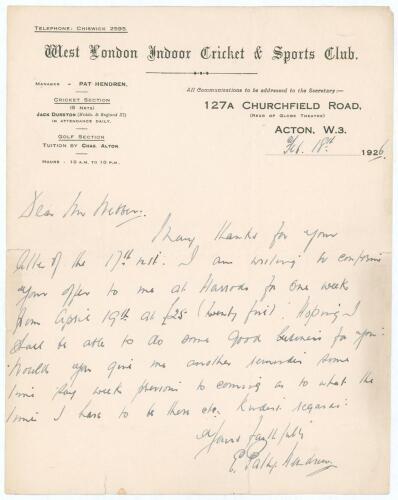 TELEPHONE: CHISWICK 2595.
West London Indoor Cricket & Sports Club.
MANAGER - PAT HENDREN.
CRICKET SECTION
(6 NETS)
JACK DURSTON (Middx. & England XI)
IN ATTENDANCE DAILY.
GOLF SECTION
TUITION BY CHAS. ALTON
HOURS - 10 A.M. TO 10 P.M.
All Communications to be addressed to the Secretary:-
127A CHURCHFIELD ROAD,
(REAR OF GLOBE THEATRE)
ACTON, W.3.
Feb. 18th 1926.
Dear Mr
Many thanks for your
letter of the 17th inst. I am writing to confirm
your offer to me at Harrods for one week
from April 19th at £25 (twenty five). Hoping I
shall be able to do some good business for you.
Would you give me another reminder some
time say week previous to coming as to what the
time I have to be there etc. Kindest regards.
Yours faithfully
E. Patsy Hendren